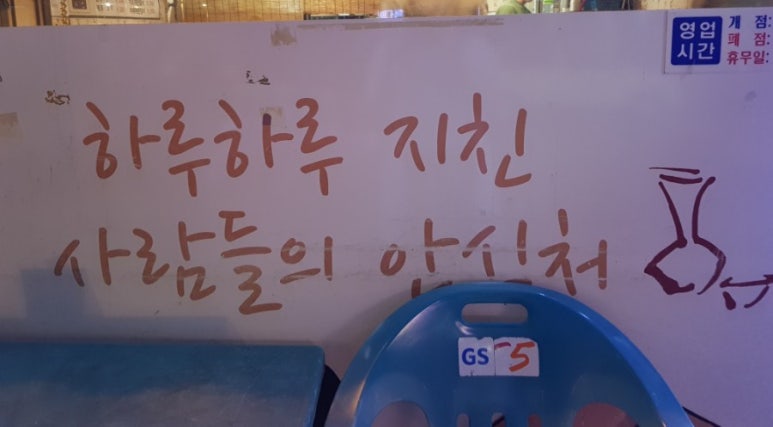 영업
시간
개 점:
폐 점:
휴무일:
하루하루 지친
사람들의 안식처
GS 5